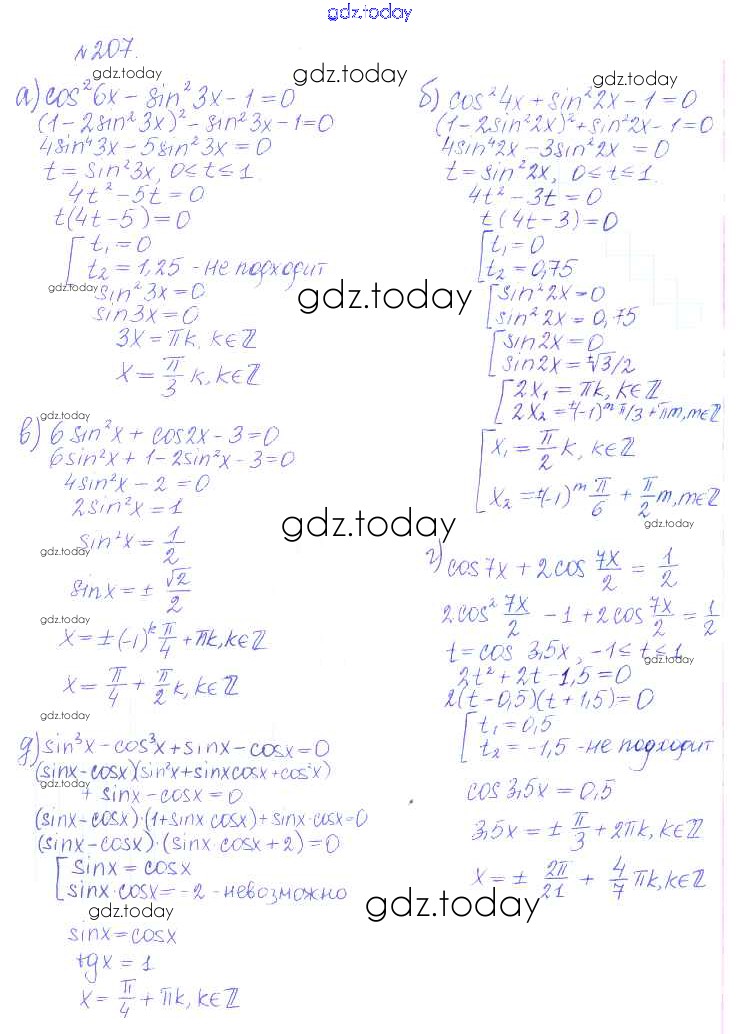 gdz.today
№207.
gdz.today gdz.today gdz.today
а) cos²6x - sin²3x - 1 = 0
(1 - 2sin²3x)² - sin²3x - 1 = 0
4sin⁴3x - 5sin²3x = 0
t = sin²3x, 0 ≤ t ≤ 1.
4t² - 5t = 0
t(4t - 5) = 0
[ t₁ = 0
t₂ = 1,25 - не подходит
gdz.today
sin²3x = 0
sin3x = 0
3x = πk, k∈ℤ
x = π/3 k, k∈ℤ
б) cos²4x + sin²2x - 1 = 0
(1 - 2sin²2x)² + sin²2x - 1 = 0
4sin⁴2x - 3sin²2x = 0
t = sin²2x, 0 ≤ t ≤ 1.
4t² - 3t = 0
t(4t - 3) = 0
[ t₁ = 0
t₂ = 0,75
gdz.today
[ sin²2x = 0
sin²2x = 0,75
[ sin2x = 0
sin2x = ±√3/2
[ 2x₁ = πk, k∈ℤ
2x₂ = ±(-1)ᵐ π/3 + πm, m∈ℤ
[ x₁ = π/2 k, k∈ℤ
x₂ = ±(-1)ᵐ π/6 + π/2 m, m∈ℤ
gdz.today
gdz.today
в) 6sin²x + cos2x - 3 = 0
6sin²x + 1 - 2sin²x - 3 = 0
4sin²x - 2 = 0
2sin²x = 1
gdz.today
sin²x = 1/2
gdz.today
sinx = ± √2/2
gdz.today
x = ±(-1)ᵏ π/4 + πk, k∈ℤ
x = π/4 + π/2 k, k∈ℤ
г) cos7x + 2cos 7x/2 = 1/2
2cos² 7x/2 - 1 + 2cos 7x/2 = 1/2
t = cos 3,5x, -1 ≤ t ≤ 1
gdz.today
2t² + 2t - 1,5 = 0
2(t - 0,5)(t + 1,5) = 0
[ t₁ = 0,5
t₂ = -1,5 - не подходит
cos 3,5x = 0,5
3,5x = ± π/3 + 2πk, k∈ℤ
x = ± 2π/21 + 4/7 πk, k∈ℤ
gdz.today
д) sin³x - cos³x + sinx - cosx = 0
(sinx - cosx)(sin²x + sinxcosx + cos²x)
gdz.today
+ sinx - cosx = 0
(sinx - cosx)·(1 + sinx cosx) + sinx·cosx = 0
(sinx - cosx)·(sinx·cosx + 2) = 0
[ sinx = cosx
sinx·cosx = -2 - невозможно
gdz.today gdz.today
sinx = cosx
tgx = 1
x = π/4 + πk, k∈ℤ